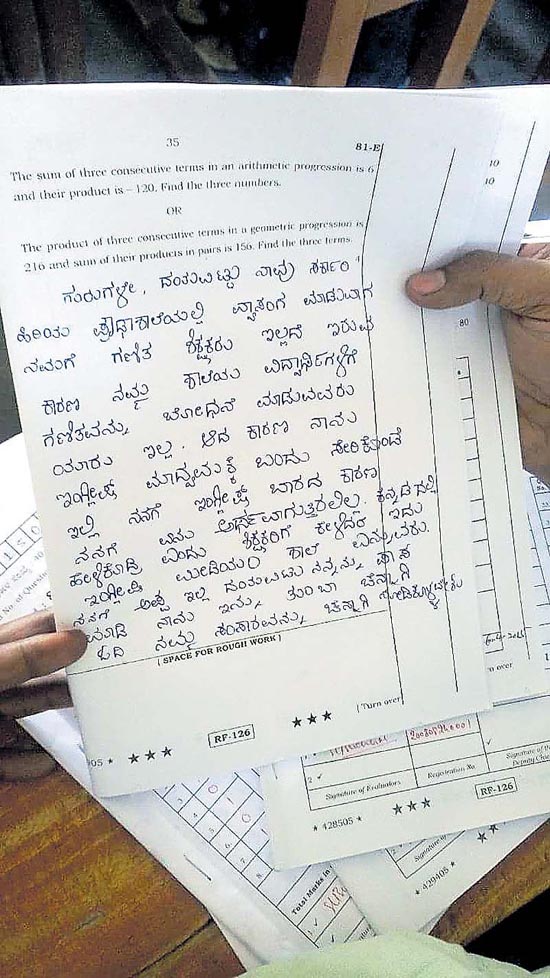 35
81-E
The sum of three consecutive terms in an arithmetic progression is 6
and their product is – 120. Find the three numbers.
OR
The product of three consecutive terms in a geometric progression is
216 and sum of their products in pairs is 156. Find the three terms.
ಗುರುಗಳೇ, ದಯವಿಟ್ಟು ನಾವು ಸರ್ಕಾರಿ
ಹಿರಿಯ ಪ್ರೌಢಶಾಲೆಯಲ್ಲಿ ವ್ಯಾಸಂಗ ಮಾಡುವಾಗ
ನಮಗೆ ಗಣಿತ ಶಿಕ್ಷಕರು ಇಲ್ಲದೆ ಇರುವ
ಕಾರಣ ನಮ್ಮ ಶಾಲೆಯ ವಿದ್ಯಾರ್ಥಿಗಳಿಗೆ
ಗಣಿತವನ್ನು ಬೋಧನೆ ಮಾಡುವವರು
ಯಾರು ಇಲ್ಲ. ಆದ ಕಾರಣ ನಾನು
ಇಂಗ್ಲೀಷ್ ಮಾಧ್ಯಮಕ್ಕೆ ಬಂದು ಸೇರಿಕೊಂಡೆ
ಇಲ್ಲಿ ನನಗೆ ಇಂಗ್ಲೀಷ್ ಬಾರದ ಕಾರಣ
ನನಗೆ ಏನು ಅರ್ಥವಾಗುತ್ತಿರಲಿಲ್ಲ. ಕನ್ನಡದಲ್ಲಿ
ಹೇಳಿಕೊಡಿ ಎಂದು ಶಿಕ್ಷಕರಿಗೆ ಕೇಳಿದರೆ ಇದು
ಇಂಗ್ಲೀಷ್ ಮೀಡಿಯಂ ಶಾಲೆ ಎನ್ನುವರು.
ನನಗೆ ಅಪ್ಪ ಇಲ್ಲ ದಯವಿಟ್ಟು ನನ್ನನ್ನು ಪಾಸ
ಮಾಡಿ ನಾನು ಇನ್ನು ತುಂಬಾ ಚೆನ್ನಾಗಿ
ಓದಿ ನಮ್ಮ ಸಂಸಾರವನ್ನು ಚೆನ್ನಾಗಿ ನೋಡಿಕೊಳ್ಳಬೇಕು
[ SPACE FOR ROUGH WORK ]
RF-126
★★★
[ Turn over
05 ★ ★★★
10
10
80
n over
Signature of Evaluators
Registration No.
Signature of the
Deputy Chief
★ 428505 ★
★★★
RF-126
★ 429405 ★
Total Marks in